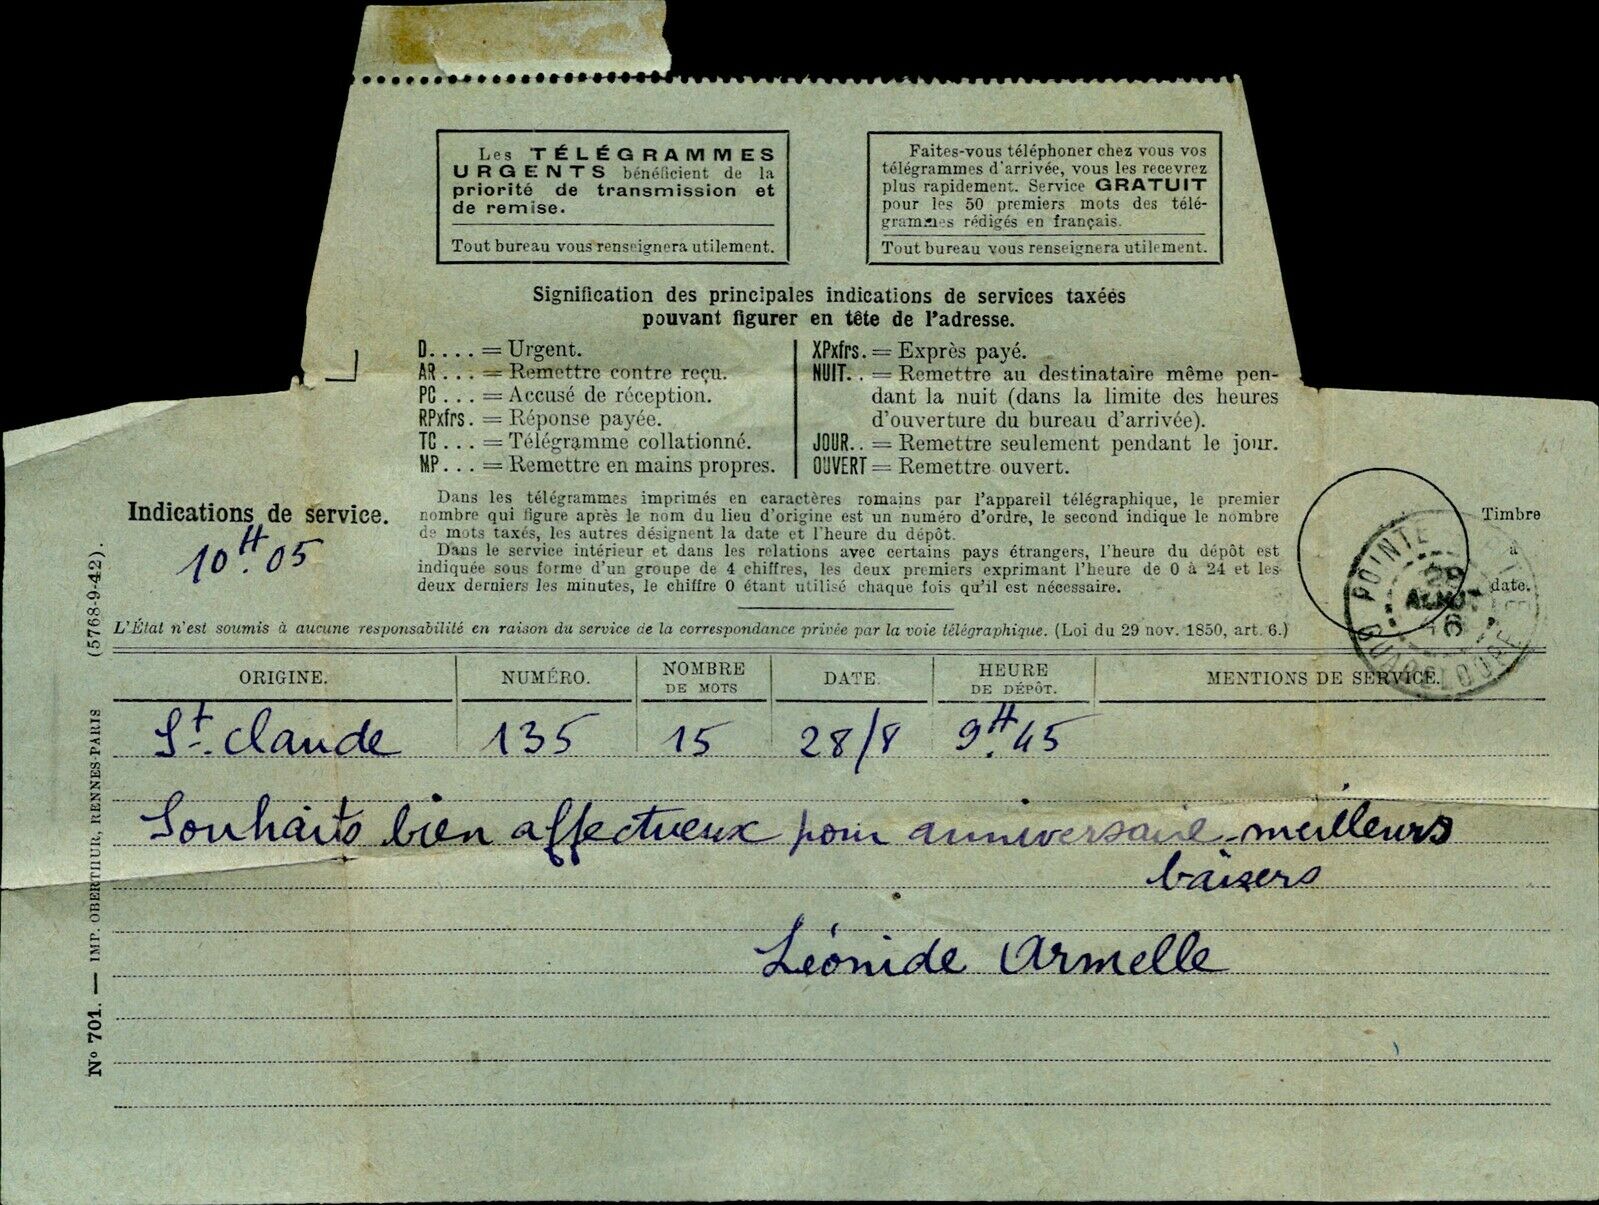 Les TÉLÉGRAMMES
URGENTS bénéficient de la
priorité de transmission et
de remise.
Tout bureau vous renseignera utilement.
Faites-vous téléphoner chez vous vos
télégrammes d'arrivée, vous les recevrez
plus rapidement. Service GRATUIT
pour les 50 premiers mots des télé-
grammes rédigés en français.
Tout bureau vous renseignera utilement.
Signification des principales indications de services taxées
pouvant figurer en tête de l'adresse.
D.... = Urgent.
AR... = Remettre contre reçu.
PC... = Accusé de réception.
RPxfrs. = Réponse payée.
TC... = Télégramme collationné.
MP... = Remettre en mains propres.
XPxfrs. = Exprès payé.
NUIT.. = Remettre au destinataire même pen-
dant la nuit (dans la limite des heures
d'ouverture du bureau d'arrivée).
JOUR.. = Remettre seulement pendant le jour.
OUVERT = Remettre ouvert.
Indications de service.
10H.05
Dans les télégrammes imprimés en caractères romains par l'appareil télégraphique, le premier
nombre qui figure après le nom du lieu d'origine est un numéro d'ordre, le second indique le nombre
de mots taxés, les autres désignent la date et l'heure du dépôt.
Dans le service intérieur et dans les relations avec certains pays étrangers, l'heure du dépôt est
indiquée sous forme d'un groupe de 4 chiffres, les deux premiers exprimant l'heure de 0 à 24 et les
deux derniers les minutes, le chiffre 0 étant utilisé chaque fois qu'il est nécessaire.
Timbre
à
date.
POINTE
28
AOUT
GUADELOUPE
L'État n'est soumis à aucune responsabilité en raison du service de la correspondance privée par la voie télégraphique. (Loi du 29 nov. 1850, art. 6.)
ORIGINE. NUMÉRO. NOMBRE DE MOTS DATE. HEURE DE DÉPÔT. MENTIONS DE SERVICE.
St. Claude 135 15 28/8 9H.45
Souhaits bien affectueux pour anniversaire meilleurs
baisers
Léonide Armelle
N° 701. — IMP. OBERTHUR, RENNES-PARIS (5768-9-42).